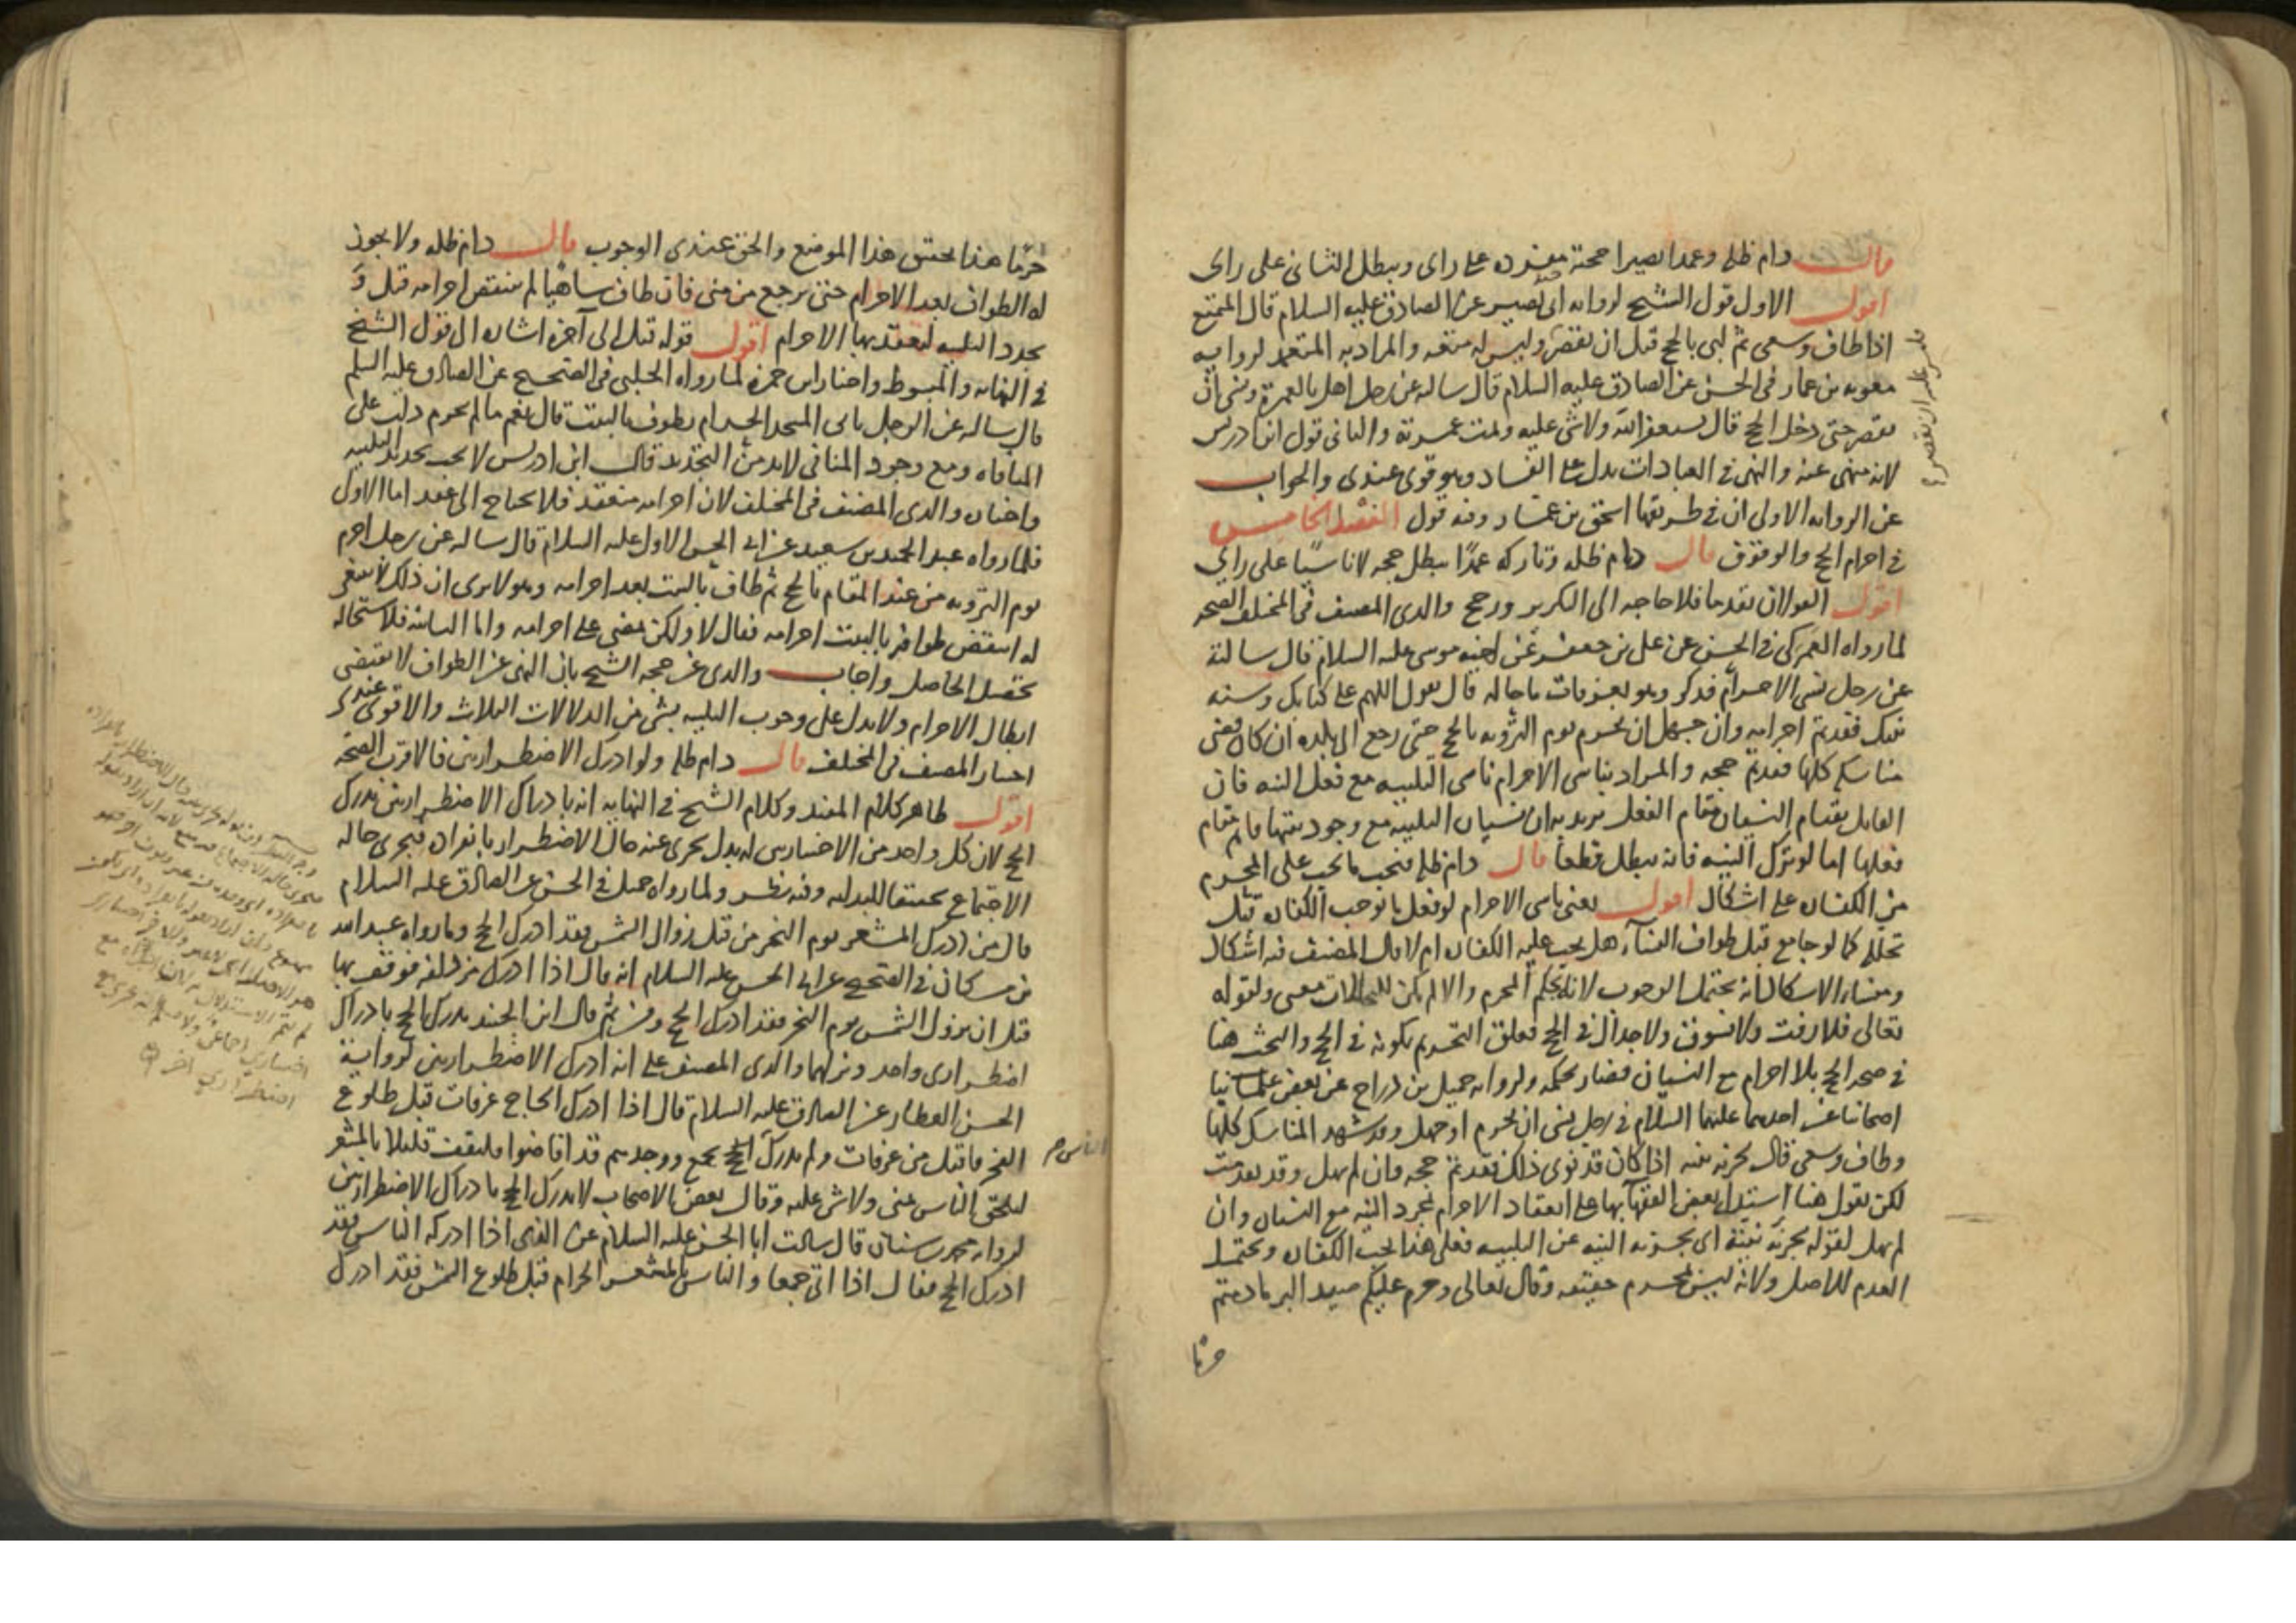 قال دام ظله وعمدا يصير حجته مفردة على راى ويبطل الثانى على راى
اقول الاول قول الشيخ لرواية ابى بصير عن الصادق عليه السلام قال المتمتع
اذا طاف وسعى ثم لبى بالحج قبل ان يقصر وليس له متعة والمراد به المتعمد لرواية
معوية بن عمار فى الحسن عن الصادق عليه السلام قال سالته عن رجل اهل بالعمرة ونسى ان
يقصر حتى دخل الحج قال يستغفر الله ولا شى عليه وتمت عمرته والثانى قول ابن ادريس
لانه منهى عنه والنهى فى العبادات يدل على الفساد وهو قوى عندى والجواب
عن الرواية الاولى ان فى طريقها اسحق بن عمار وفيه قول الفصل الخامس
فى احرام الحج والوقوف قال دام ظله وتاركه عمدًا يبطل حجه لا ناسيًا على راى
اقول القولان تقدما فلا حاجة الى التكرير ورجح والدى المصنف فى المختلف الصحة
لما رواه العمركى فى الحسن عن على بن جعفر عن اخيه موسى عليه السلام قال سالته
عن رجل نسى الاحرام فذكر وهو بعرفات ما حاله قال يقول اللهم على كتابك وسنة
نبيك فقد تم احرامه وان جهل ان يحرم يوم التروية بالحج حتى رجع الى بلده ان كان قضى
مناسكه كلها فقد تم حجه والمراد بناسى الاحرام ناسى التلبية مع فعل النية فان
القايل بقيام النسيان مقام الفعل يريد به ان نسيان التلبية مع وجود نيتها قايم مقام
فعلها اما لو ترك النية فانه يبطل قطعا قال دام ظله فيجب ما يجب على المحرم
من الكفارة على اشكال اقول يعنى ناسى الاحرام لو فعل ما يوجب الكفارة قبل
تحلله كما لو جامع قبل طواف النساء هل يجب عليه الكفارة ام لا قال المصنف فيه اشكال
ومنشا الاشكال انه يحتمل الوجوب لانه بحكم المحرم والا لم يكن للتحللات معنى ولقوله
تعالى فلا رفث ولا فسوق ولا جدال فى الحج فعلق التحريم بكونه فى الحج والبحث هنا
فى صحة الحج بلا احرام مع النسيان فصار بحكمه ولرواية جميل بن دراج عن بعض علمائنا
اصحابنا عن احدهما عليهما السلام فى رجل نسى ان يحرم او جهل وقد شهد المناسك كلها
وطاف وسعى قال يجزيه نيته اذا كان قد نوى ذلك فقد تم حجه وان لم يهل وقد تقدمت
لكن نقول هنا استدل بعض الفقهآ بها على انعقاد الاحرام بمجرد النية مع النسيان وان
لم يهل لقوله يجزيه نيته اى يجزيه النية عن التلبية فعلى هذا يجب الكفارة ويحتمل
العدم للاصل ولانه ليس بمحرم حقيقة وقال تعالى وحرم عليكم صيد البر ما دمتم
حرما
حرمًا هذا يختص هذا الموضع والحق عندى الوجوب قال دام ظله ولا يجوز
له الطواف بعد الاحرام حتى يرجع من منى فان طاف ساهيا لم ينتقض احرامه قيل و
يجدد التلبية ليعقد بها الاحرام اقول قوله قيل الى آخره اشارة الى قول الشيخ
فى النهاية والمبسوط واختار ابن حمزة لما رواه الحلبى فى الصحيح عن الصادق عليه السلم
قال سالته عن الرجل ياتى المسجد الحرام يطوف بالبيت قال نعم ما لم يحرم دلت على
المنافاة ومع وجود المنافى لابد من التجديد قال ابن ادريس لا يجب تجديد التلبية
واختاره والدى المصنف فى المختلف لان احرامه منعقد فلا يحتاج الى عقد اما الاول
فلما رواه عبد الحميد بن سعيد عن ابى الحسن الاول عليه السلام قال سالته عن رجل احرم
يوم التروية من عند المقام بالحج ثم طاف بالبيت بعد احرامه وهو لا يرى ان ذلك لا ينبغى
له اينقض طوافه بالبيت احرامه فقال لا ولكن يمضى على احرامه واما الثانية فلاستحالة
تحصيل الحاصل واجاب والدى عن حجة الشيخ بان النهى عن الطواف لا يقتضى
ابطال الاحرام ولا يدل على وجوب التلبية بشى من الدلالات الثلاث والاقوى عندى
اختيار المصنف فى المختلف قال دام ظله ولو ادرك الاضطراريين فالاقرب الصحة
اقول ظاهر كلام المفيد وكلام الشيخ فى النهاية انه بادراك الاضطراريين يدرك
الحج لان كل واحد من الاختياريين له بدل يجرى عنه حال الاضطرار بانفراده فيجرى حالة
الاجتماع تحقيقا للبدلية وفيه نظر ولما رواه جميل فى الحسن عن الصادق عليه السلام
قال من ادرك المشعر يوم النحر من قبل زوال الشمس فقد ادرك الحج وما رواه عبد الله
بن مسكان فى الصحيح عن ابى الحسن عليه السلام انه قال اذا ادرك مزدلفة فوقف بها
قبل ان يزول الشمس يوم النحر فقد ادرك الحج ومن ثم قال ابن الجنيد يدرك الحج بادراك
اضطرارى واحد ونزلهما والدى المصنف على انه ادرك الاضطراريين لرواية
الحسن العطار عن الصادق عليه السلام قال اذا ادرك الحاج عرفات قبل طلوع
الفجر فاقبل من عرفات ولم يدرك الناس بجمع ووجدهم قد افاضوا فليقف قليلا بالمشعر
ليلحق الناس بمنى ولا شى عليه وقال بعض الاصحاب لا يدرك الحج بادراك الاضطراريين
لرواية محمد بن سنان قال سالت ابا الحسن عليه السلام عن الذى اذا ادركه الناس فقد
ادرك الحج فقال اذا اتى جمعا والناس بالمشعر الحرام قبل طلوع الشمس فقد ادرك